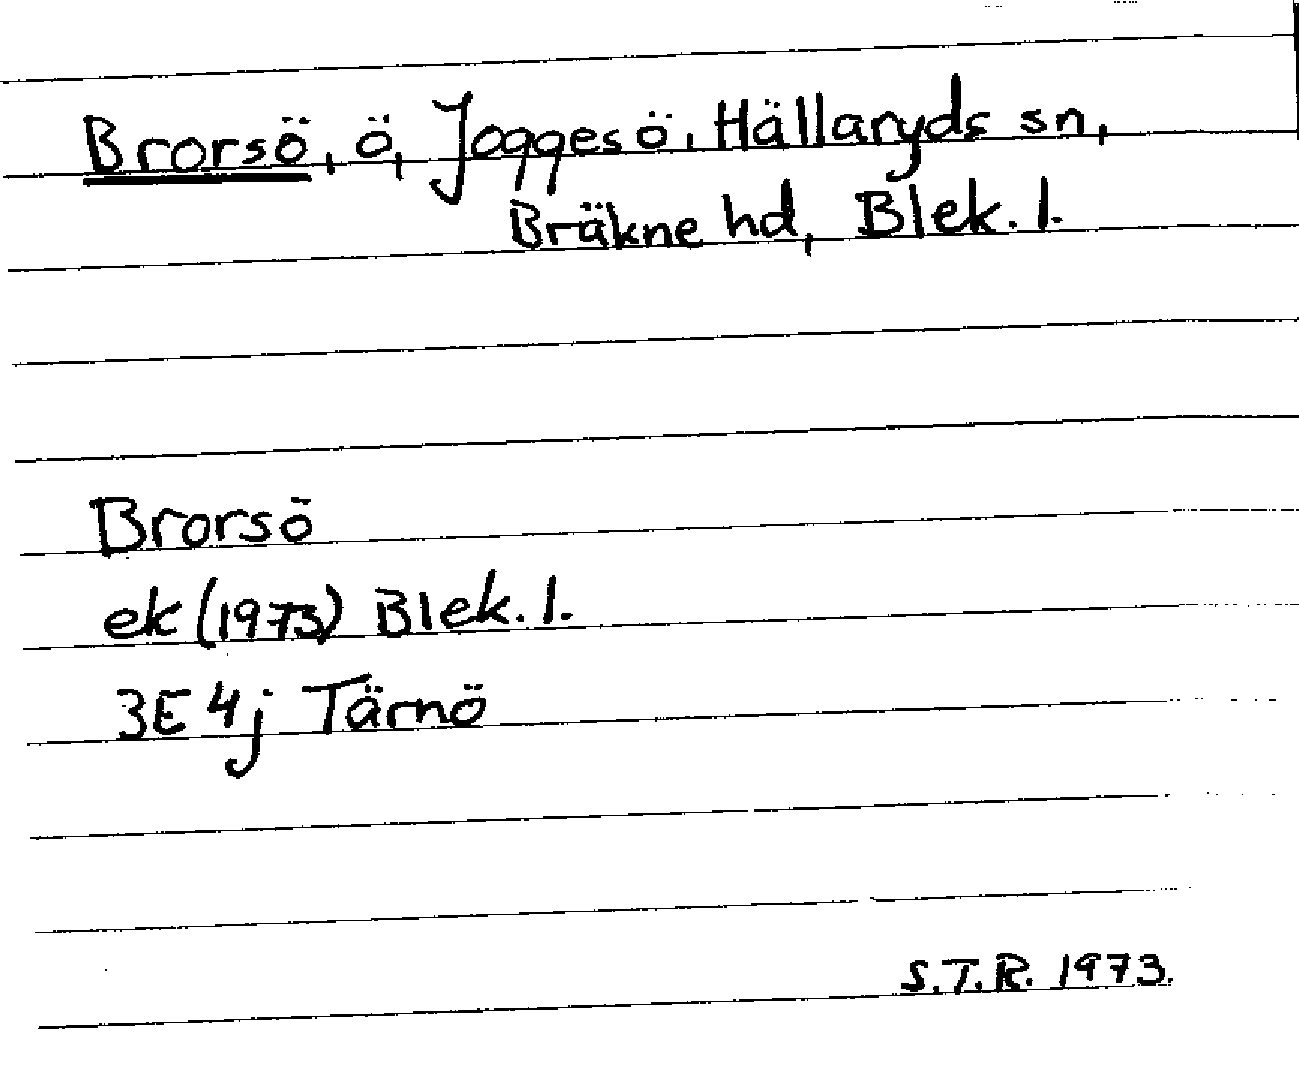 Brorsö, ö, Joggesö, Hällaryds sn,
Bräkne hd, Blek. l.
Brorsö
ek (1973) Blek. l.
3E 4j Tärnö
S.T.R. 1973.